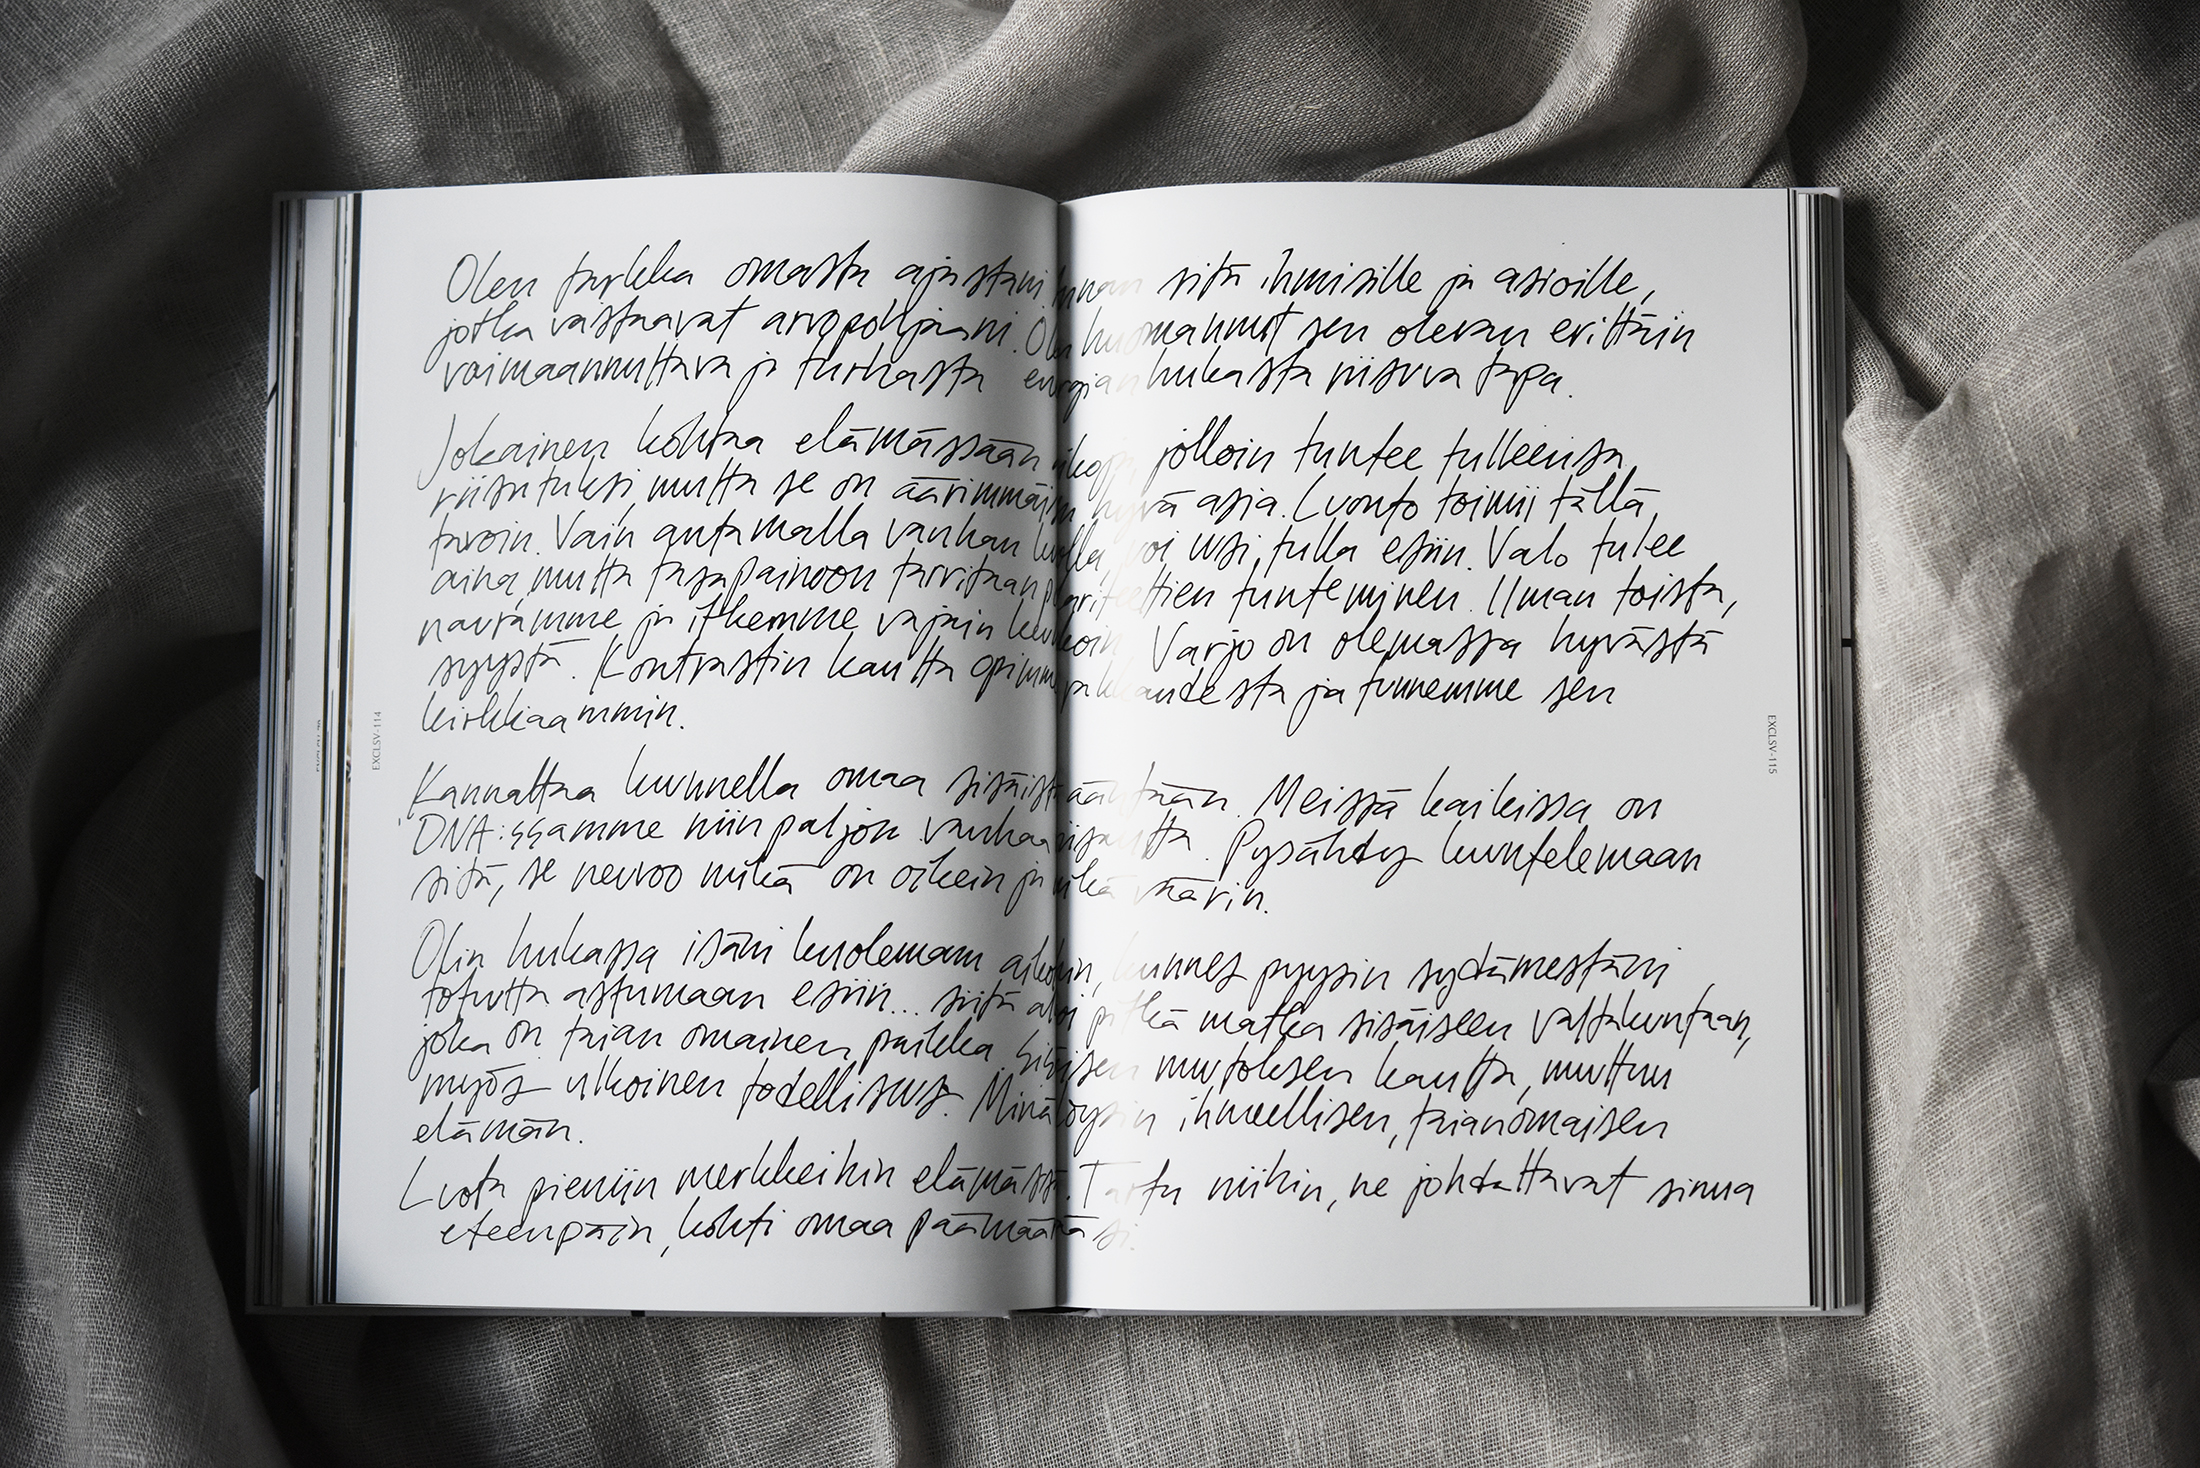 Olen tarkka omasta ajastani. Annan sitä ihmisille ja asioille,
jotka vastaavat arvopohjaani. Olen huomannut sen olevan erittäin
voimaannuttava ja turhasta energian hukasta riisuva tapa.
Jokainen kohtaa elämässään aikoja, jolloin tuntee tulleensa
riisutuksi, mutta se on äärimmäisen hyvä asia. Luonto toimii tällä
tavoin. Vain antamalla vanhan kuolla, voi uusi tulla esiin. Valo tulee
aina, mutta tasapainoon tarvitaan polariteettien tunteminen. Ilman toista,
nauramme ja itkemme vajain keuhkoin. Varjo on olemassa hyvästä
syystä. Kontrastin kautta opimme rakkaudesta ja tunnemme sen
kirkkaammin.
Kannattaa kuunnella omaa sisäistä ääntään. Meissä kaikissa on
DNA:ssamme niin paljon vanhaa viisautta. Pysähdy kuuntelemaan
sitä, se neuvoo mikä on oikein ja mikä väärin.
Olin hukassa isäni kuoleman aikoihin, kunnes pyysin sydämestäni
totuutta astumaan esiin... siitä alkoi pitkä matka sisäiseen valtakuntaan,
joka on taian omainen paikka. Sisäisen muutoksen kautta, muuttuu
myös ulkoinen todellisuus. Minä löysin ihmeellisen, taianomaisen
elämän.
Luota pieniin merkkeihin elämässä. Tartu niihin, ne johdattavat sinua
eteenpäin, kohti omaa päämäärääsi.
EXCLSV-114
EXCLSV-115